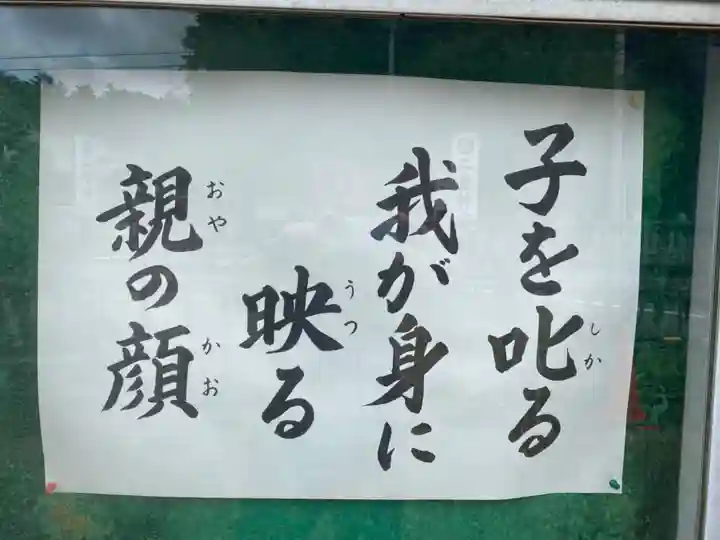 子を叱る
しか
我が身に
映る
うつ
親の顔
おや
かお